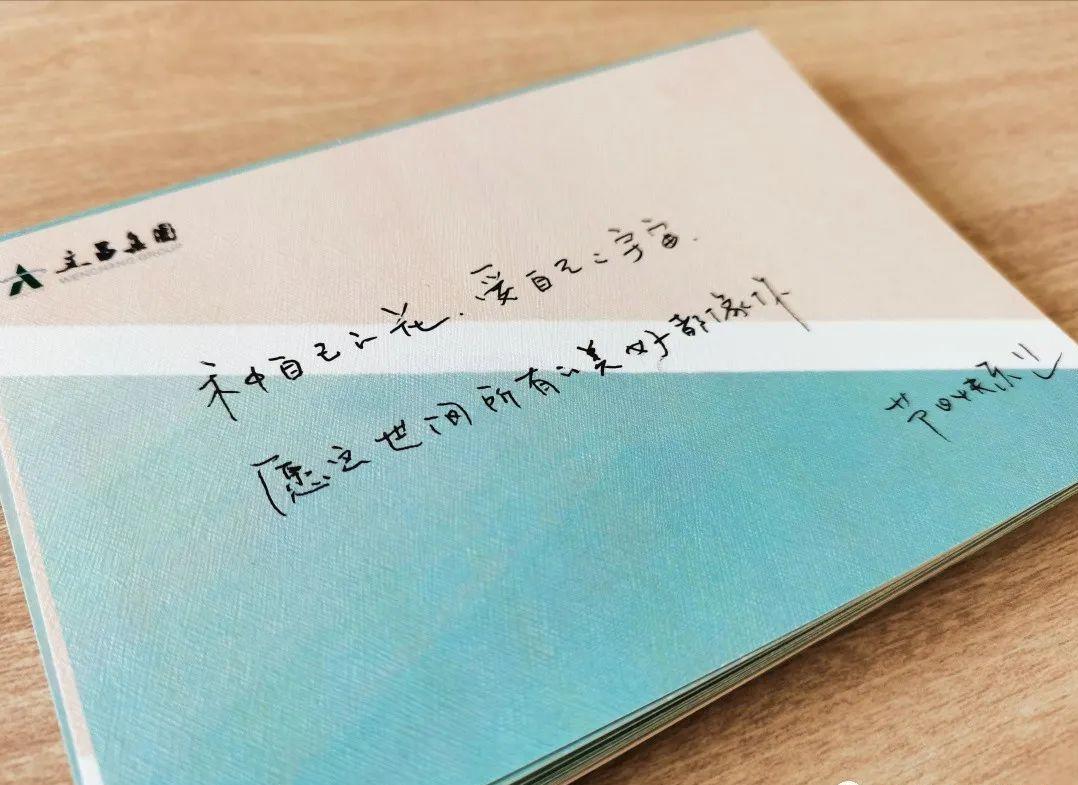 种自己的花.爱自己的宇宙.
愿这世间所有的美好都像你
节日快乐!